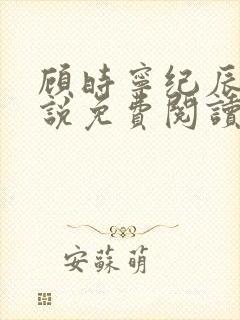 顾时寧纪辰
說免費閱讀
安蘇萌